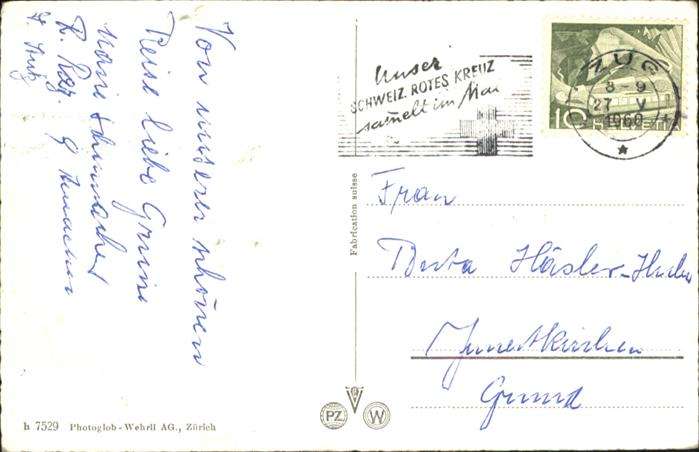 Von unserer schönen
Reise liebe Grüsse
Marie Schumacher
R. Kaz. G Amacher
Unser
SCHWEIZ. ROTES KREUZ
sammelt im Mai
ZUG
8-9
27 V
1960
10 HELVETIA
Frau
Berta Häsler-Huber
Innertkirchen
Grund
Fabrication suisse
PZ W
h 7529 Photoglob-Wehrli AG., Zürich